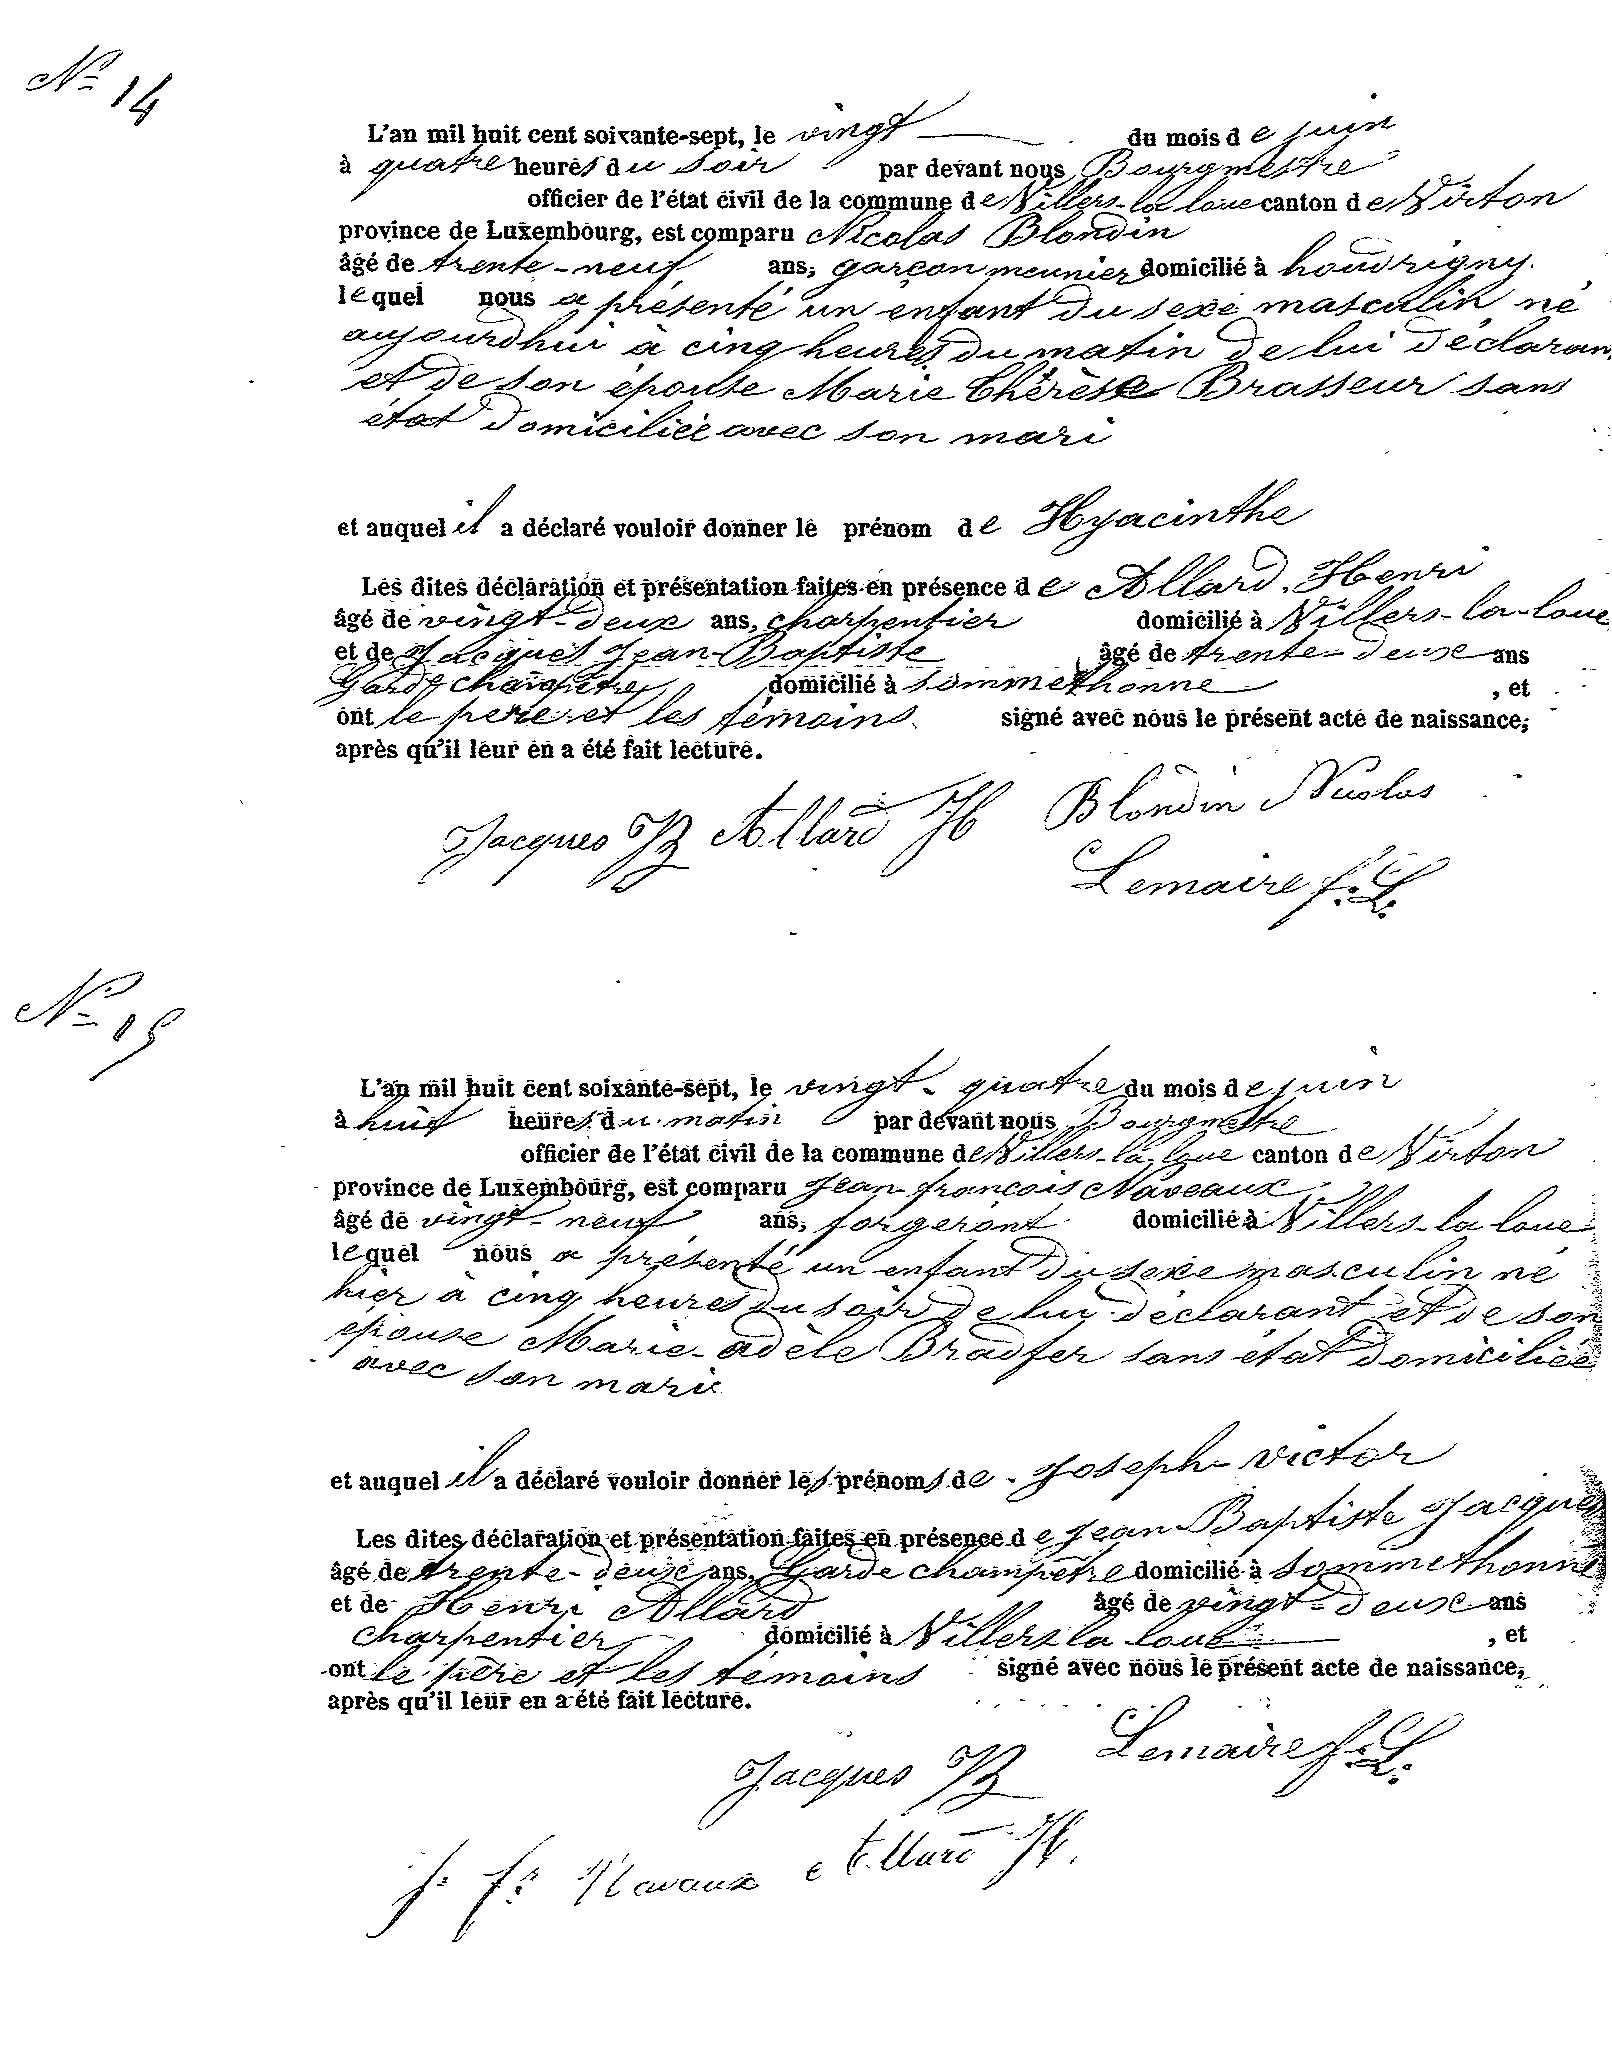 N° 14
L'an mil huit cent soixante-sept, le vingt du mois de juin
à quatre heures du soir par devant nous Bourgmestre
officier de l'état civil de la commune de Villers-la-loue canton de Virton
province de Luxembourg, est comparu Nicolas Blondin
âgé de trente-neuf ans, garçon meunier domicilié à houdrigny.
lequel nous a présenté un enfant du sexe masculin né
aujourdhui à cinq heures du matin de lui déclaran
et de son épouse Marie Thérèse Brasseur sans
état domiciliée avec son mari
et auquel il a déclaré vouloir donner le prénom de Hyacinthe
Les dites déclaration et présentation faites en présence de Allard Henri
âgé de vingt-deux ans, charpentier domicilié à Villers-la-loue
et de Jacques Jean-Baptiste âgé de trente-deux ans
Garde champêtre domicilié à Sommethonne , et
ont le père et les témoins signé avec nous le présent acte de naissance,
après qu'il leur en a été fait lecture.
Jacques JB Allard H Blondin Nicolas
Lemaire f. L.
N° 15
L'an mil huit cent soixante-sept, le vingt-quatre du mois de juin
à huit heures du matin par devant nous Bourgmestre
officier de l'état civil de la commune de Villers-la-loue canton de Virton
province de Luxembourg, est comparu Jean-françois Naveaux
âgé de vingt-neuf ans, forgeront domicilié à Villers-la loue
lequel nous a présenté un enfant du sexe masculin né
hier à cinq heures du soir de lui déclarant et de son
épouse Marie-adèle Bradfer sans état domiciliée
avec son mari
et auquel il a déclaré vouloir donner les prénoms de Joseph-victor
Les dites déclaration et présentation faites en présence de Jean-Baptiste Jacques
âgé de trente-deux ans, Garde champêtre domicilié à Sommethonne
et de Henri Allard âgé de vingt-deux ans
charpentier domicilié à Villers la loue , et
ont le père et les témoins signé avec nous le présent acte de naissance,
après qu'il leur en a été fait lecture.
Jacques JB Lemaire f. L.
J. fs Navaux Allard H.